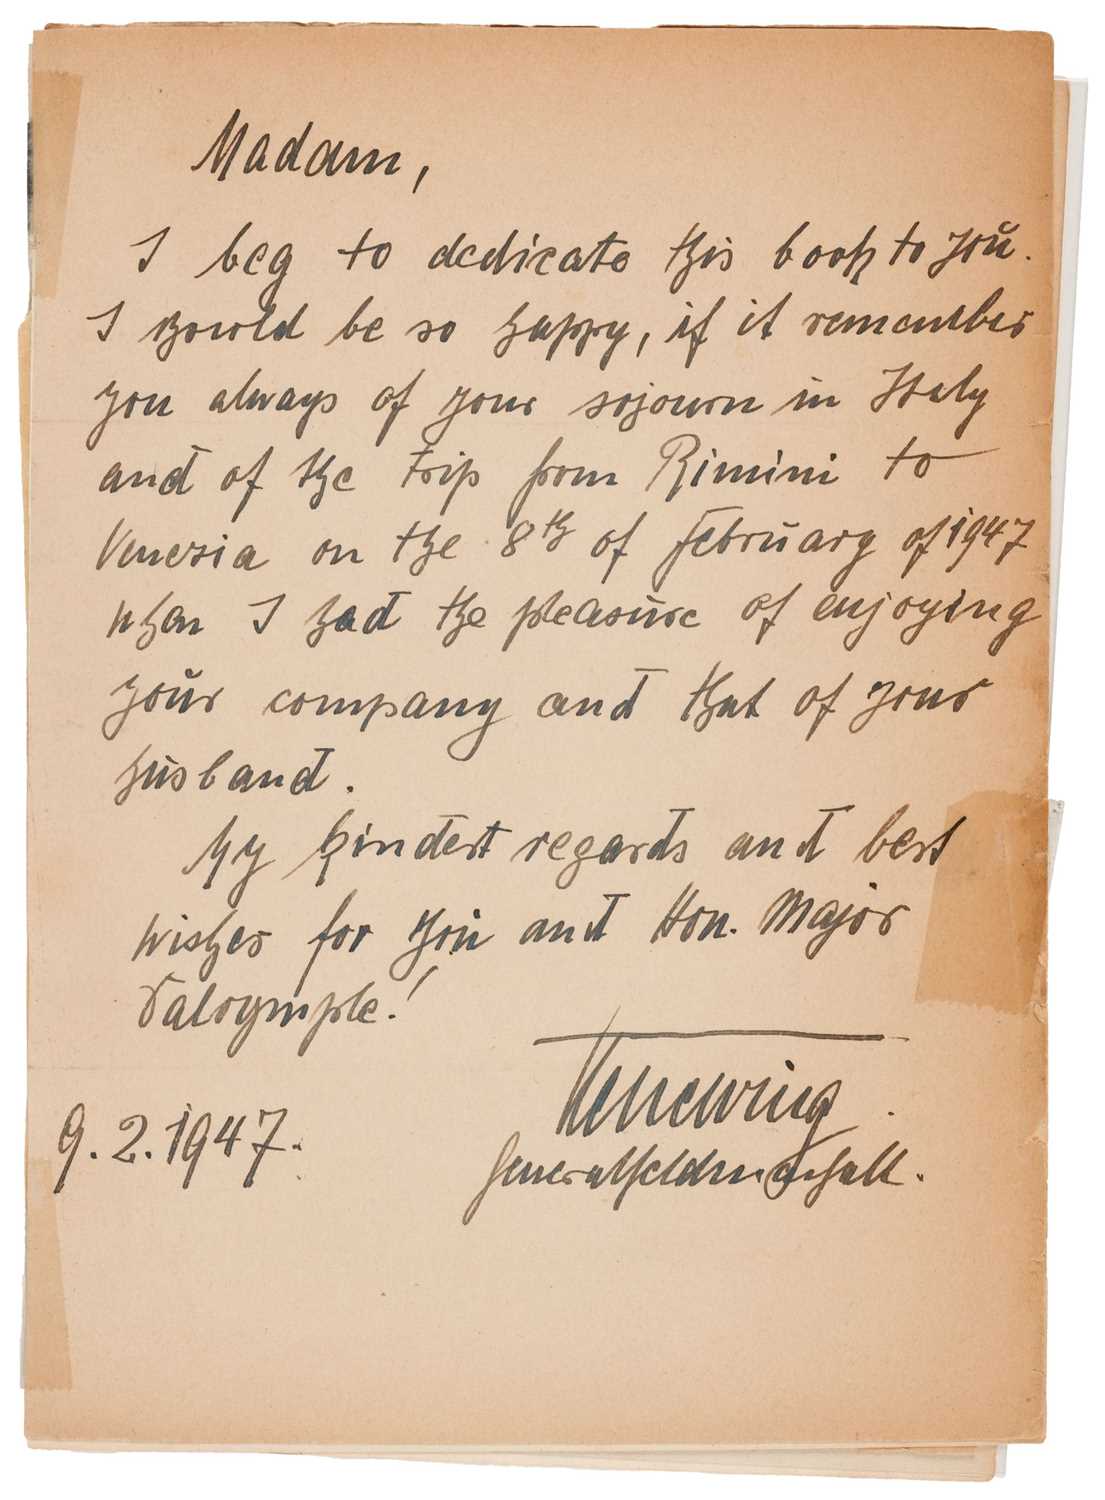 Madam,
I beg to dedicate this book to you.
I would be so happy, if it remember
you always of your sojourn in Italy
and of the trip from Rimini to
Venezia on the 8th of February of 1947
when I had the pleasure of enjoying
your company and that of your
husband.
My kindest regards and best
wishes for you and Hon. Major
Dalrymple!
Kesselring
9.2.1947.
Generalfeldmarschall.